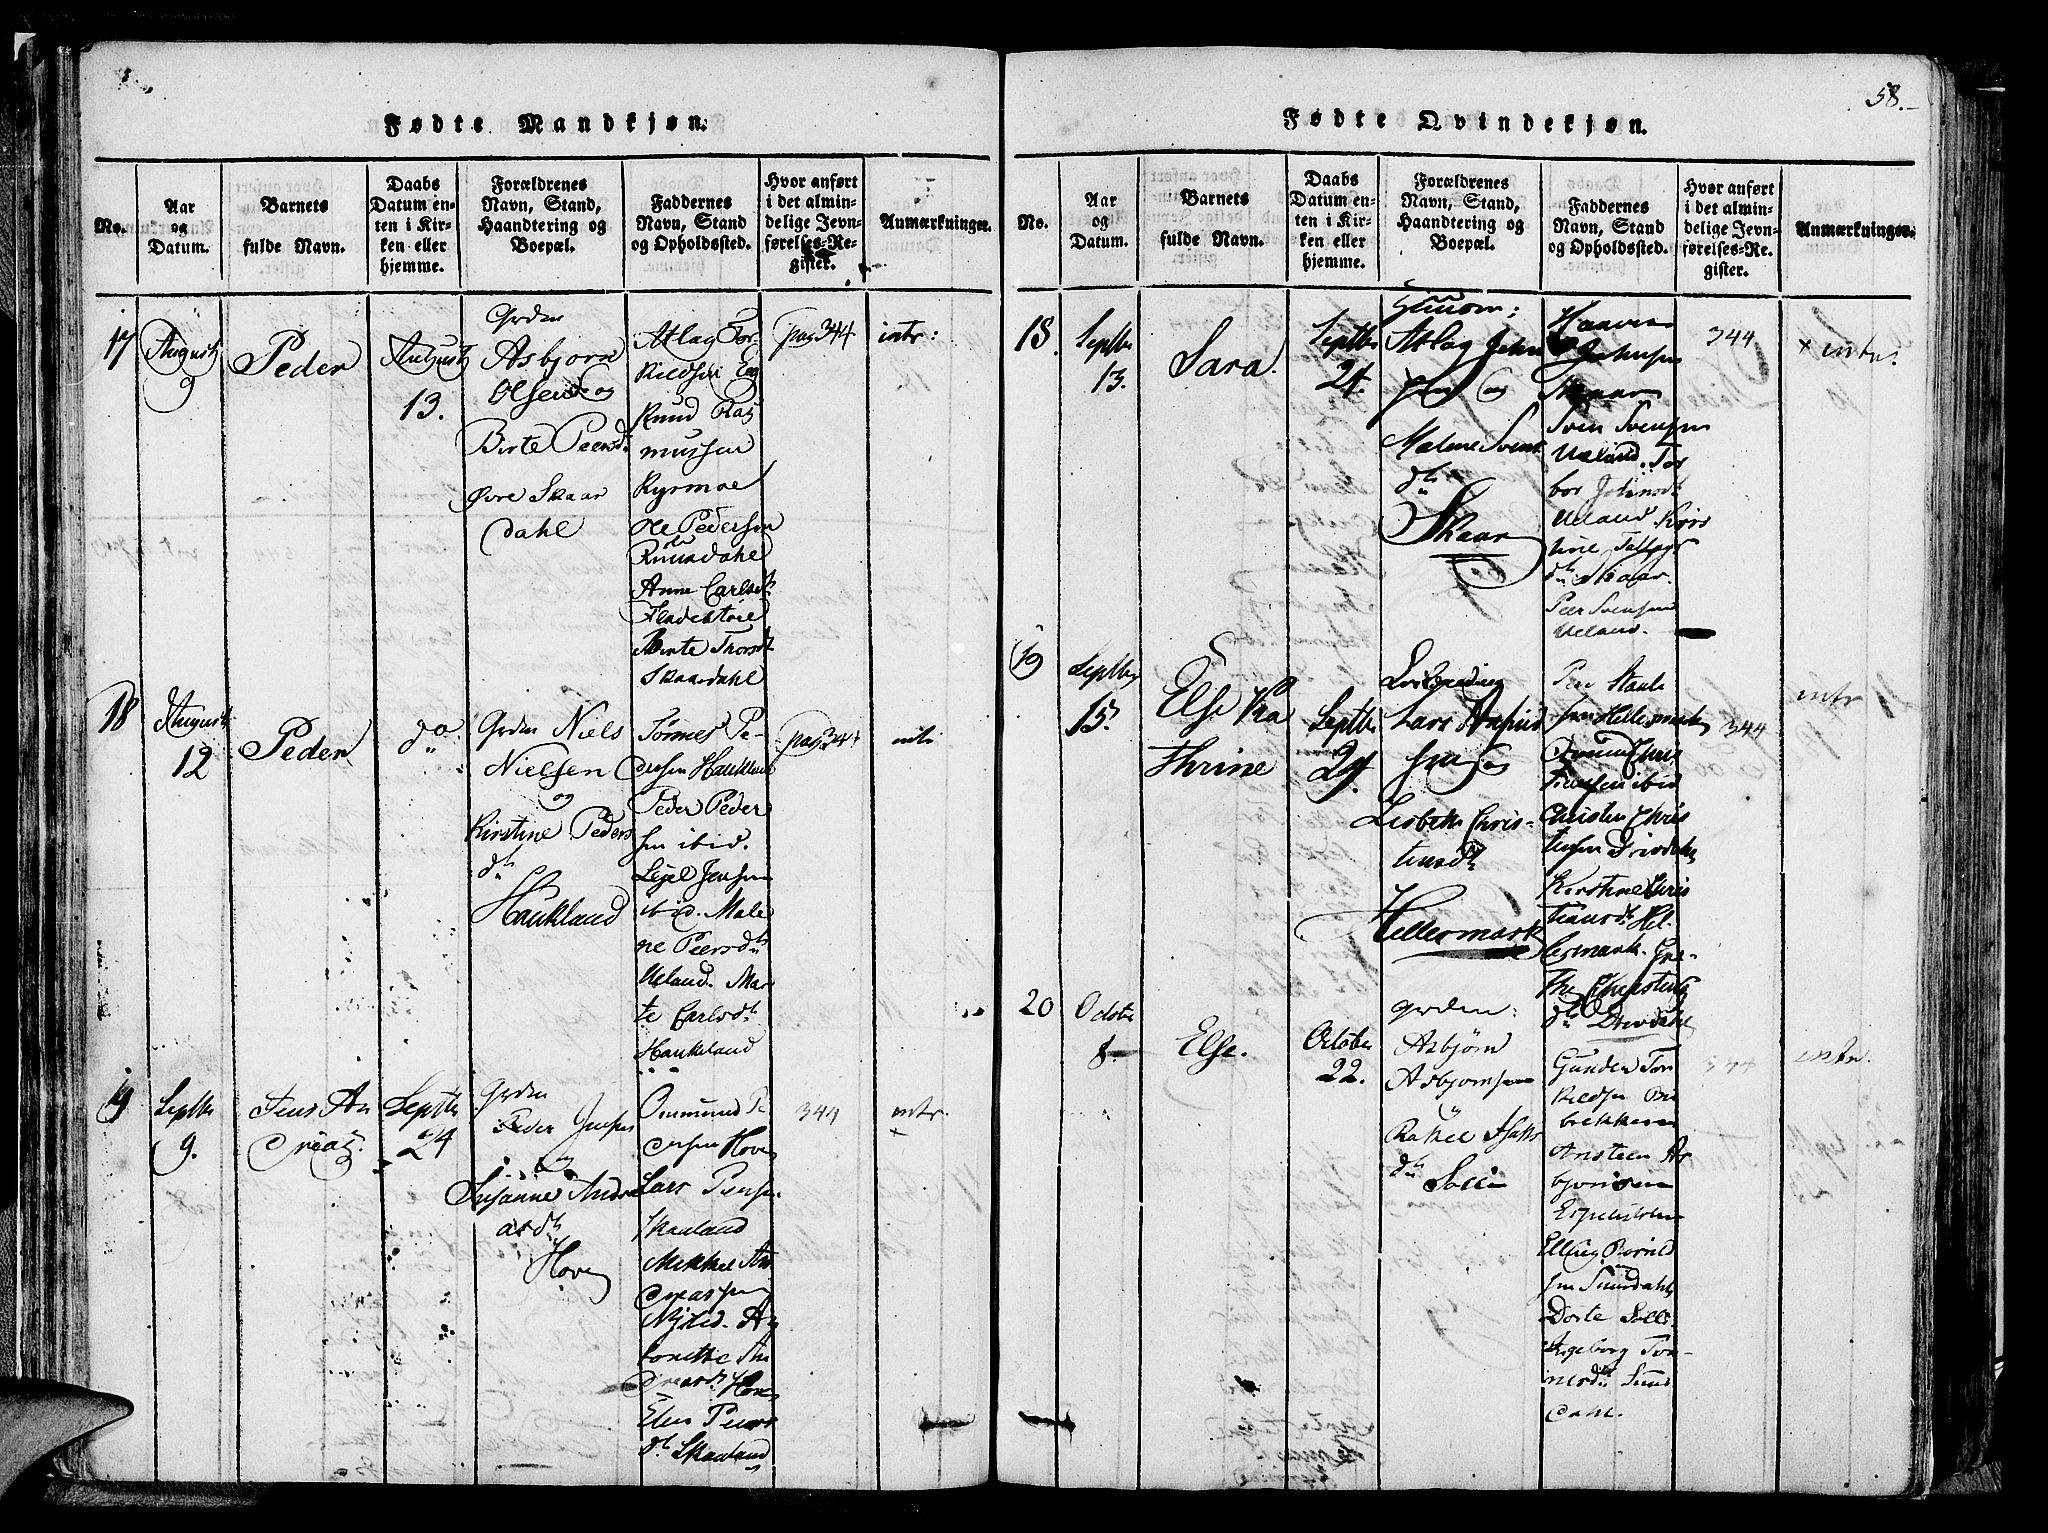 58.
Fødte Mandkjøn.
No.
Aar og Datum.
Barnets fulde Navn.
Daabs Datum enten i Kirken eller hjemme.
Forældrenes Navn, Stand, Haandtering og Boepæl.
Faddernes Navn, Stand og Opholdssted.
Hvor anført i det almindelige Jevnførelses-Register.
Anmærkninger.
17
August
9
Peder
August
13.
Grden
Asbjørn
Olsen og
Birte Peersd.
Øvre Skaar
dahl
Atlag Tor-
kildsen Eeg
Knud Ras
mussen
Kyrmoe
Ole Pedersen
Anne Carlsd.
Birte Thorsd.
Skaardahl
pag 344
intr:
18
August
12
Peder
do
Grden Niels
Nielsen
og
Kirstine Peders
dtr
Haukland
Tønnes Pe-
dersen Haukland
Peder Peder
sen ibid.
Lejel Jensen
ibid. Male
ne Peersdtr
Ueland. Mar
te Carlsdtr
Haukeland
pag 344
intr
19
Septbr
9.
Jens An
dreas.
Septbr
24
Grden
Peder Jespers
og
Susanne Andre
asdtr
Hove
Ommund Pe
dersen Hove
Lars Peersen
Skaaland
Mikkel An
dreassen
An
tonette An
dreasdtr Hove
Elen Peers
dtr Skaaland
344
intr.
Fødte Qvindekjøn.
No.
Aar og Datum.
Barnets fulde Navn.
Daabs Datum enten i Kirken eller hjemme.
Forældrenes Navn, Stand, Haandtering og Boepæl.
Faddernes Navn, Stand og Opholdssted.
Hvor anført i det almindelige Jevnførelses-Register.
Anmærkninger.
18.
Septbr
13.
Sara.
Septbr
24.
Atlag John
sen og
Malene Svens
dtr
Skaar
Haaver
Johnsen
Skaar
Sven Svensen
Ueland. Tor
bor Johnsdtr
Ueland Kirs
tine
dtr Skaar.
Peer Svensen
Ueland.
344
+ intr.
19
Septbr
15.
Else Ka
thrine
Septbr
24.
Lars
sen og
Lisbeth Chris-
tensdtr
Hellermark
Peer Staale
sen Hellermark
Omund Chris
tensen ibid
Christen Chris
tensen Drivdahl
Kirstine Chris
tiansdtr Hel-
lermark. Gre-
the Christens
dtr Drivdahl
344
intr
20
October
8.
Else.
October
22.
Grden:
Asbjørn
Asbjørnsen
Rakel Isaks
dtr
Solli
Gunder Tor
kildsen Bi
brekken
Ansteen As
bjørnsen
Espetvedten
Elling
sen Sirnsdahl
Dorte Solli
Ingeborg Tøn-
nesdtr Sirns
dahl.
344
intr.